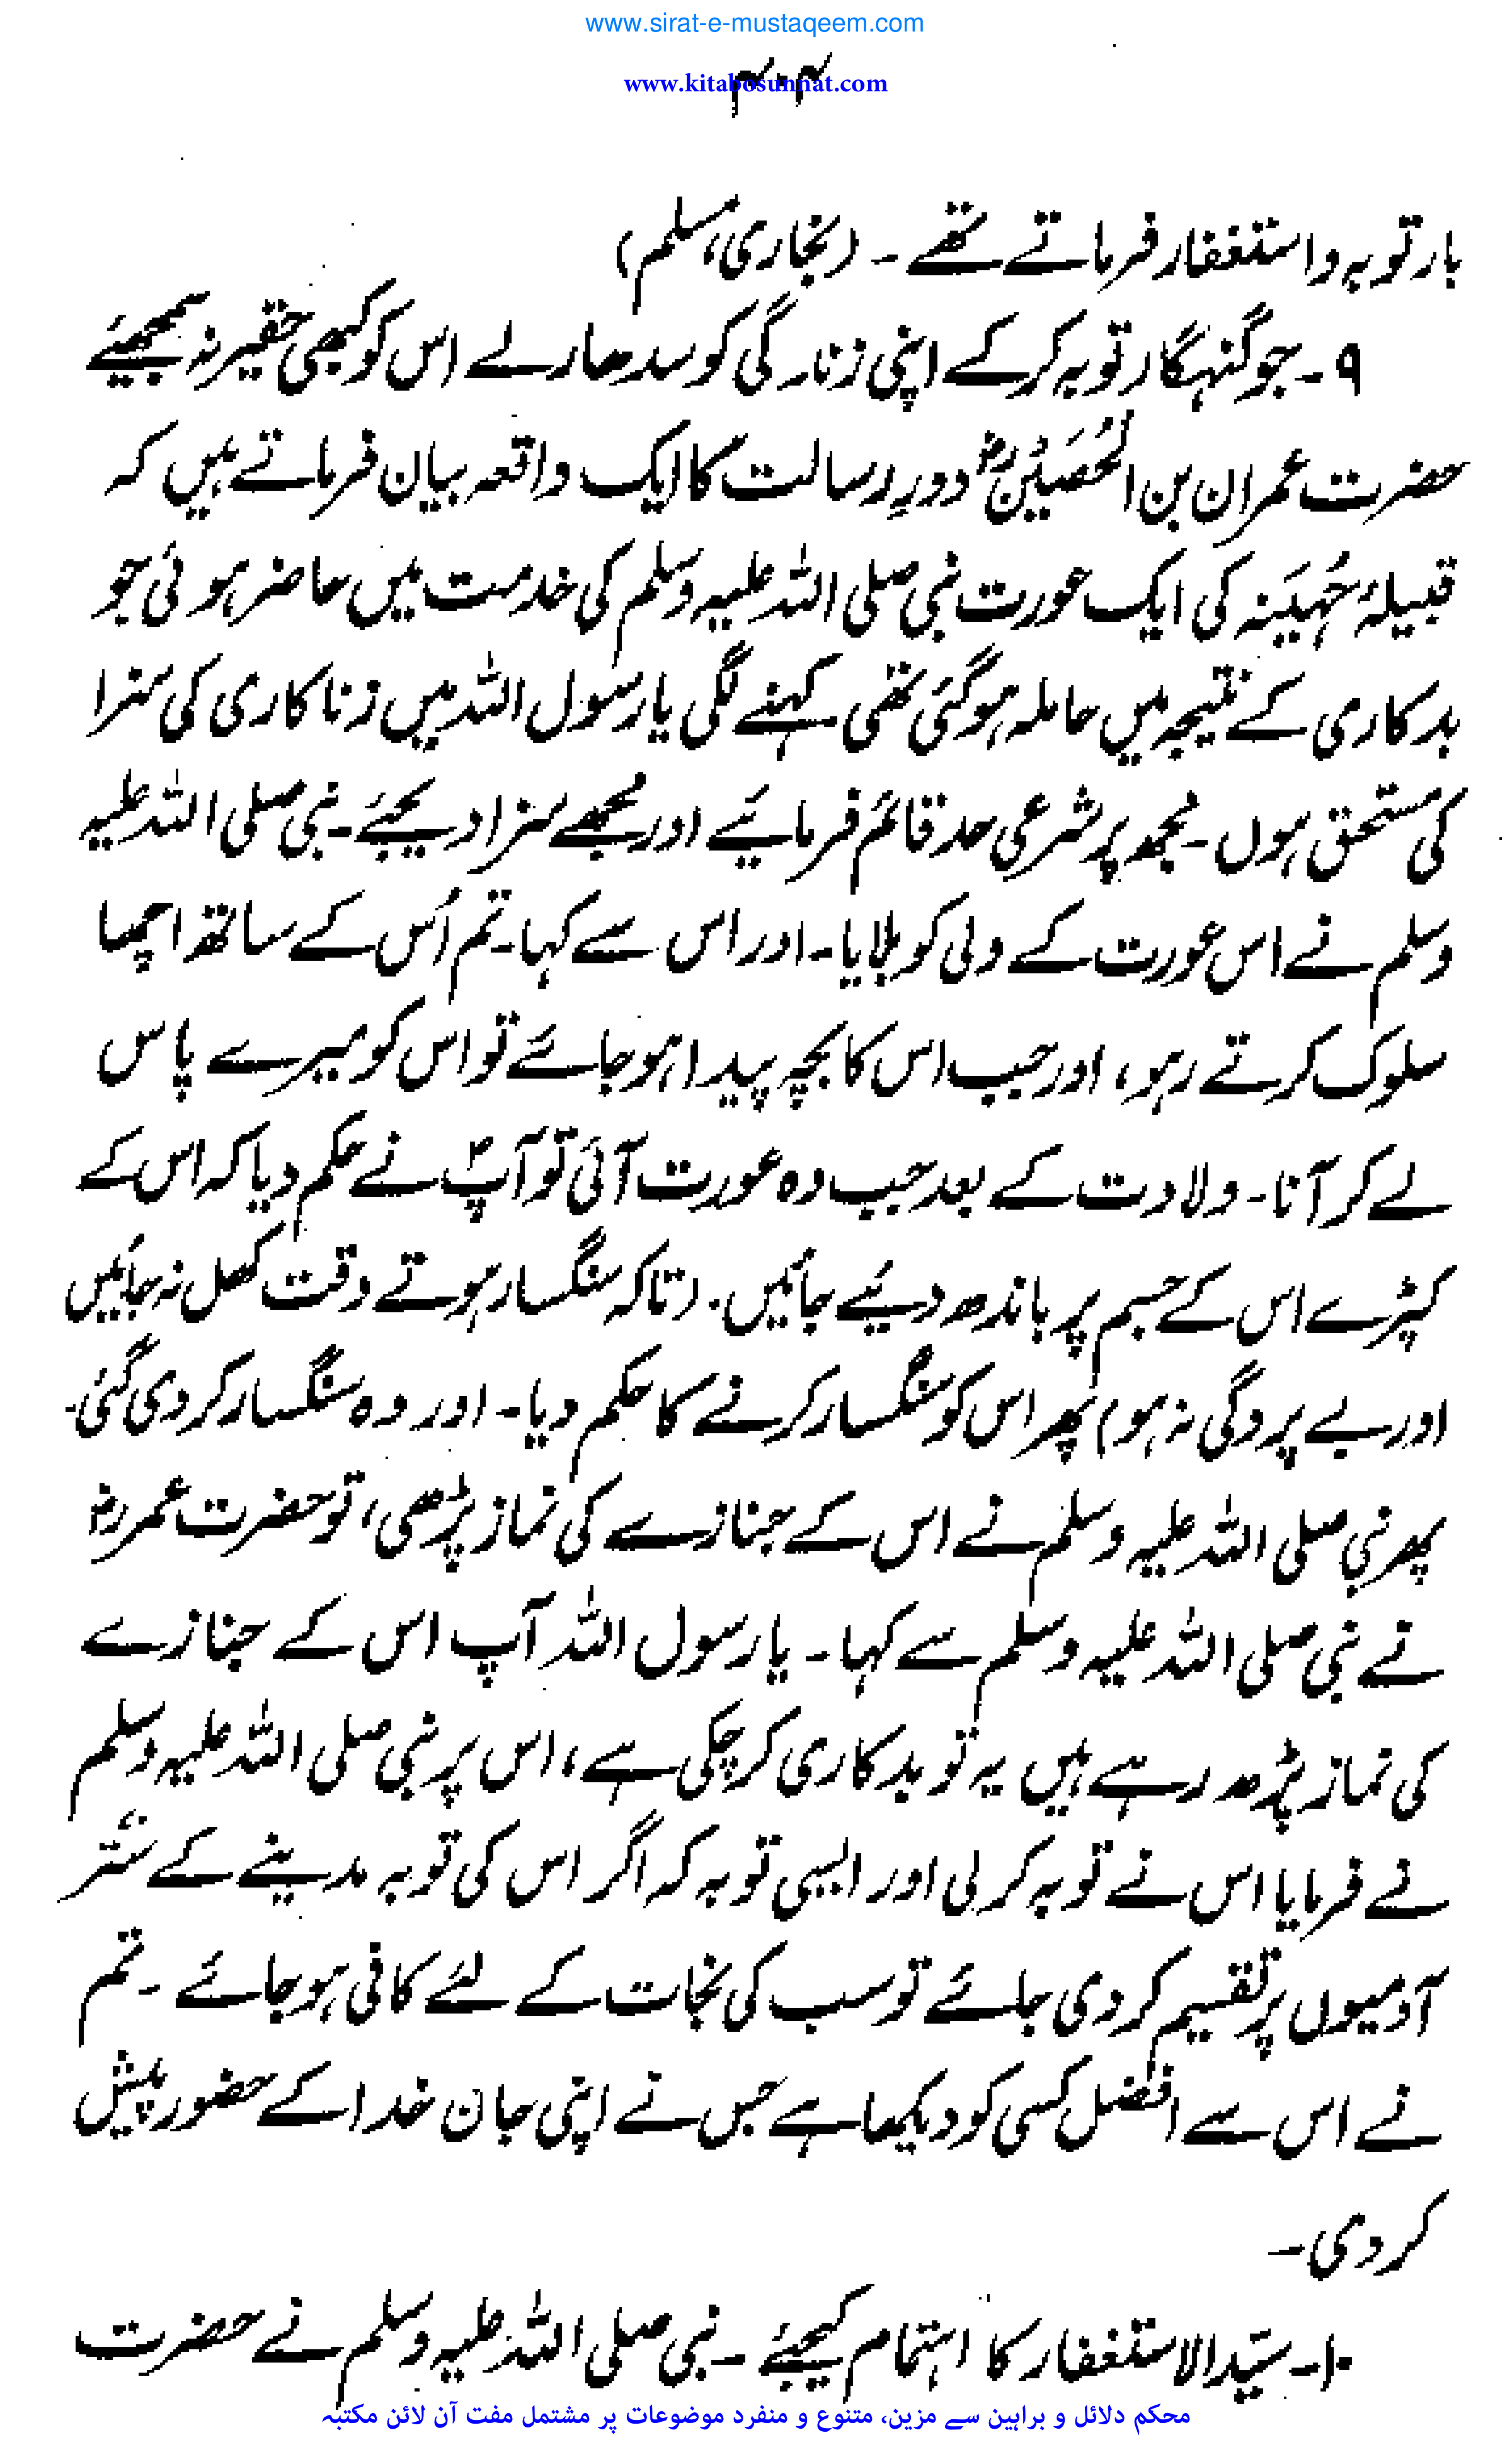 www.sirat-e-mustaqeem.com
www.kitabosunnat.com
۴۰۴
بار توبہ و استغفار فرماتے تھے ۔ (بخاری، مسلم)
۹ ۔ جو گنہگار توبہ کرکے اپنی زندگی کو سدھارلے اس کو کبھی حقیر نہ سمجھیئے
حضرت عمران بن الحُصَیْنؓ دورِ رسالت کا ایک واقعہ بیان فرماتے ہیں کہ
قبیلۂ جُہَینَہ کی ایک عورت نبی صلی اللہ علیہ وسلم کی خدمت میں حاضر ہوئی جو
بدکاری کے نتیجہ میں حاملہ ہوگئی تھی کہنے لگی یا رسول اللہ میں زناکاری کی سزا
کی مستحق ہوں ۔ مجھ پر شرعی حد قائم فرمائیے اور مجھے سزا دیجئے ۔ نبی صلی اللہ علیہ
وسلم نے اس عورت کے ولی کو بلایا ۔ اور اس سے کہا ۔ تم اُس کے ساتھ اچھا
سلوک کرتے رہو، اور جب اس کا بچہ پیدا ہوجائے تو اس کو میرے پاس
لے کر آنا ۔ ولادت کے بعد جب وہ عورت آئی تو آپؐ نے حکم دیا کہ اس کے
کپڑے اس کے جسم پر باندھ دیئے جائیں ۔ (تاکہ سنگسار ہوتے وقت کھل نہ جائیں
اور بے پردگی نہ ہو) پھر اس کو سنگسار کرنے کا حکم دیا ۔ اور وہ سنگسار کردی گئی ۔
پھر نبی صلی اللہ علیہ وسلم نے اس کے جنازے کی نماز پڑھی، تو حضرت عمرؓ
نے نبی صلی اللہ علیہ وسلم سے کہا ۔ یا رسول اللہ آپ اس کے جنازے
کی نماز پڑھ رہے ہیں یہ تو بدکاری کرچکی ہے، اس پر نبی صلی اللہ علیہ وسلم
نے فرمایا اس نے توبہ کرلی اور ایسی توبہ کہ اگر اس کی توبہ مدینے کے ستّر
آدمیوں پر تقسیم کردی جائے تو سب کی نجات کے لئے کافی ہوجائے ۔ تم
نے اس سے افضل کسی کو دیکھا ہے جس نے اپنی جان خدا کے حضور پیش
کردی ۔
۱۰ ۔ سیّد الاستغفار کا اہتمام کیجئے ۔ نبی صلی اللہ علیہ وسلم نے حضرت
محکم دلائل و براہین سے مزین، متنوع و منفرد موضوعات پر مشتمل مفت آن لائن مکتبہ